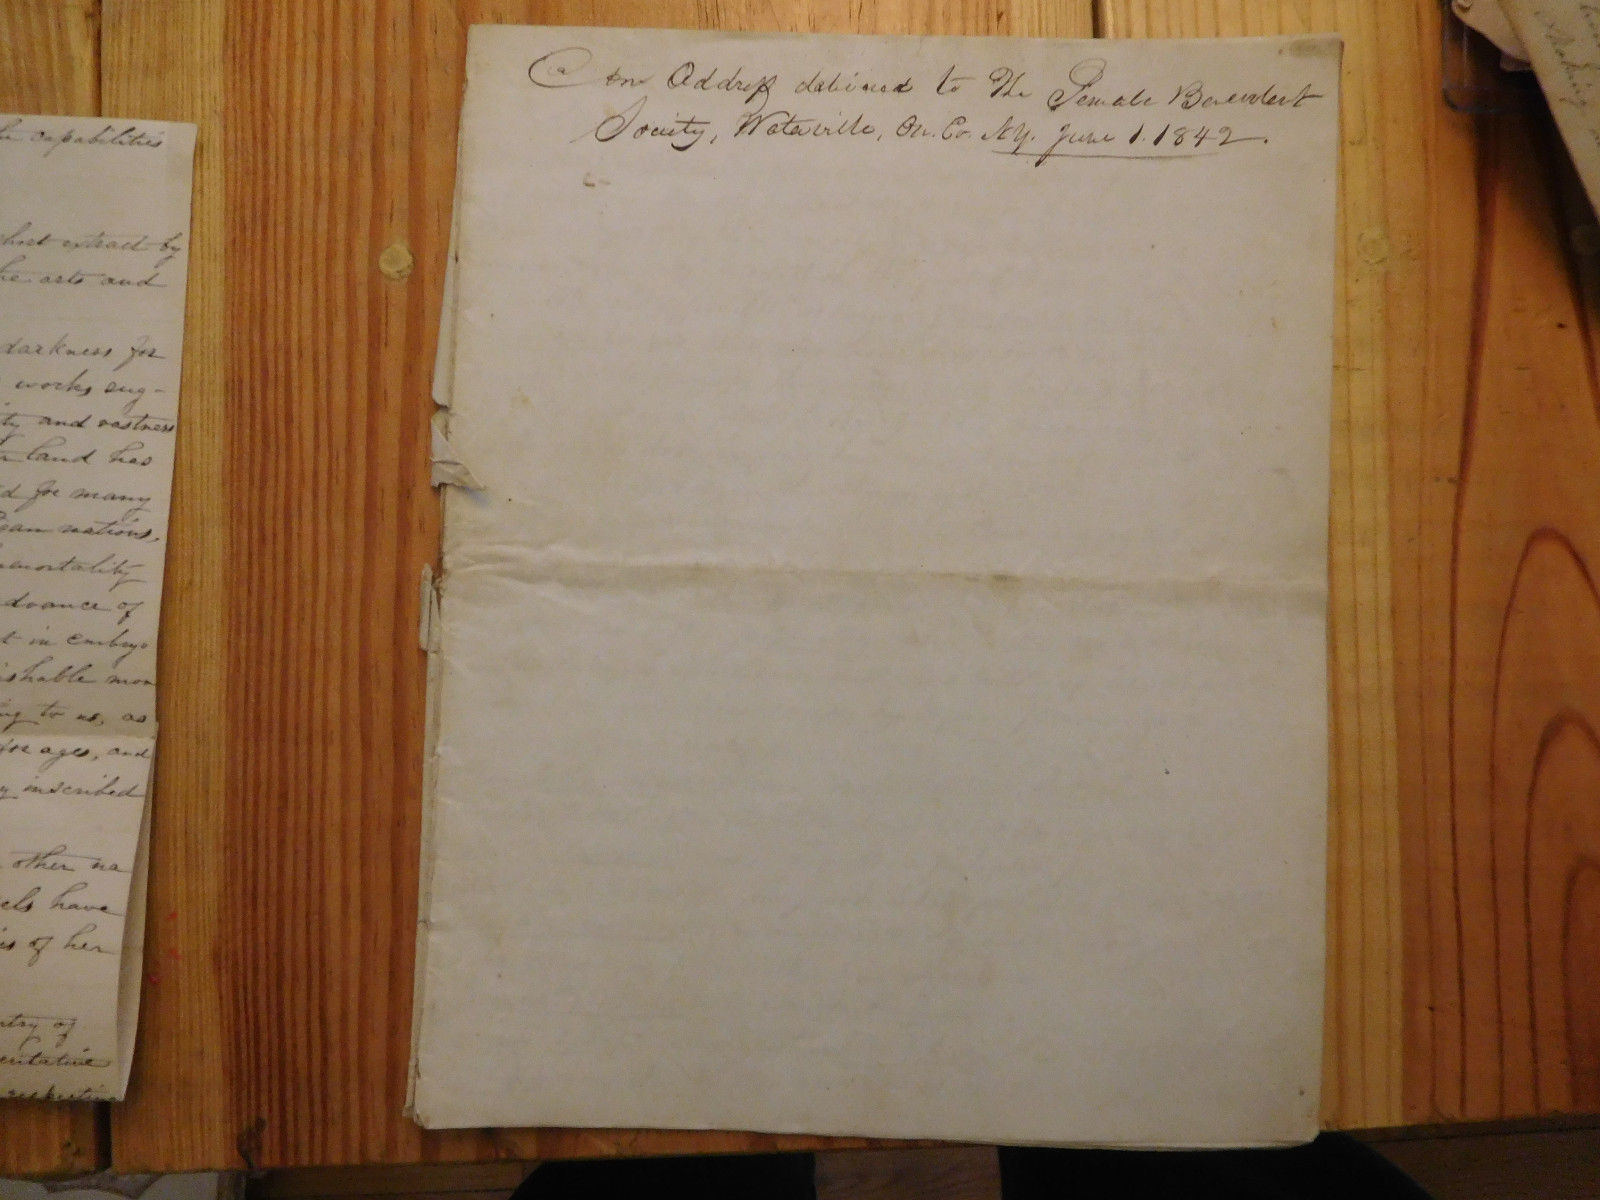 An Address delivered to the Female Benevolent
Society, Waterville, On. Co. N.Y. June 1. 1842.
capabilities
short extract by
the arts and
darkness for
works sug-
ty and vastness
land has
d for many
pean nations,
immortality
advance of
t in embryo
ishable mon
ing to us, as
for ages, and
inscribed
other na
els have
is of her
ntry of
entative